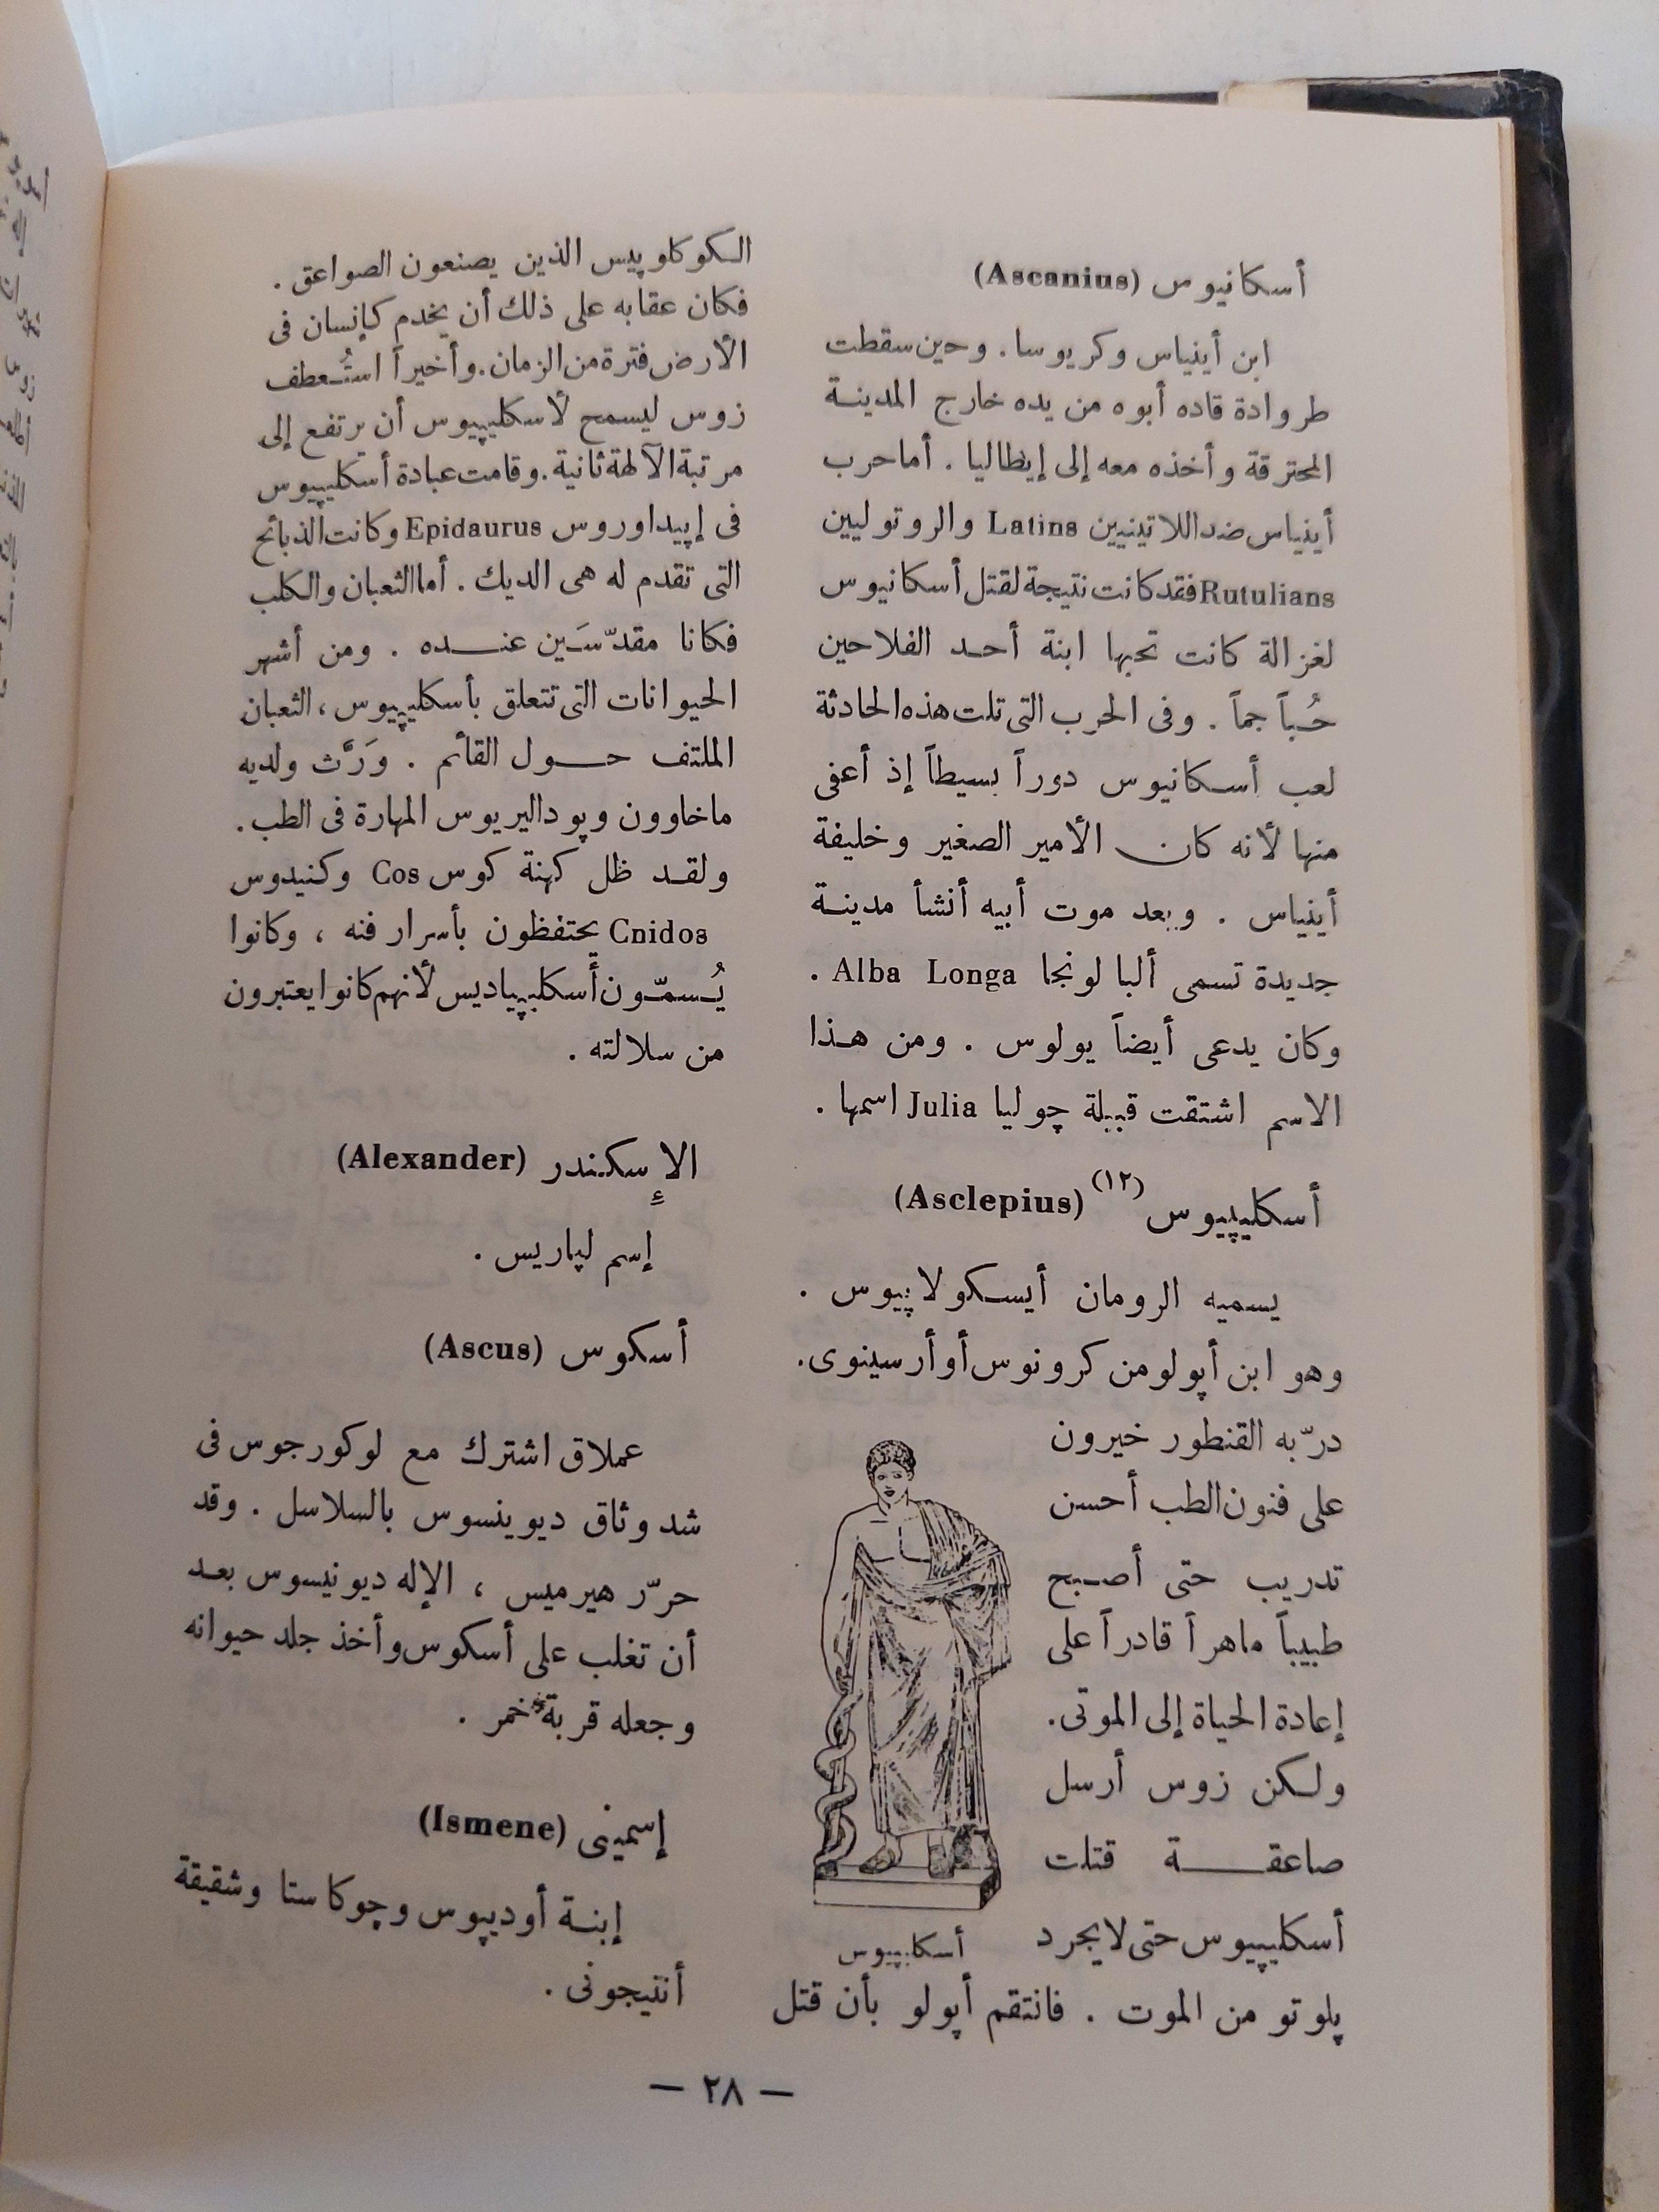 أسكانيوس (Ascanius)
ابن أينياس وكريوسا . وحين سقطت
طروادة قاده أبوه من يده خارج المدينة
المحترقة وأخذه معه إلى إيطاليا . أما حرب
أينياس ضد اللاتينيين Latins والروتوليين
Rutulians فقد كانت نتيجة لقتل أسكانيوس
لغزالة كانت تحبها ابنة أحد الفلاحين
حُباً جماً . وفى الحرب التى تلت هذه الحادثة
لعب أسكانيوس دوراً بسيطاً إذ أعفى
منها لأنه كان الأمير الصغير وخليفة
أينياس . وبعد موت أبيه أنشأ مدينة
جديدة تسمى ألبا لونجا Alba Longa .
وكان يدعى أيضاً يولوس . ومن هذا
الاسم اشتقت قبيلة چوليا Julia اسمها .
أسكليپيوس (١٢) (Asclepius)
يسميه الرومان أيسكولاپيوس .
وهو ابن أپولو من كرونوس أو أرسينوى .
درّبه القنطور خيرون
على فنون الطب أحسن
تدريب حتى أصبح
طبيباً ماهراً قادراً على
إعادة الحياة إلى الموتى .
ولكن زوس أرسل
صاعقة قتلت
أسكليپيوس حتى لا يجرد
أسكليپيوس
پلوتو من الموت . فانتقم أپولو بأن قتل
الكوكلوپيس الذين يصنعون الصواعق .
فكان عقابه على ذلك أن يخدم كإنسان فى
الأرض فترة من الزمان . وأخيراً استُعطف
زوس ليسمح لأسكليپيوس أن يرتفع إلى
مرتبة الآلهة ثانية . وقامت عبادة أسكليپيوس
فى إپيداوروس Epidaurus وكانت الذبائح
التى تقدم له هى الديك . أما الثعبان والكلب
فكانا مقدّسَين عنده . ومن أشهر
الحيوانات التى تتعلق بأسكليپيوس ، الثعبان
الملتف حول القائم . وَرَّث ولديه
ماخاوون وپوداليريوس المهارة فى الطب .
ولقد ظل كهنة كوس Cos وكنيدوس
Cnidos يحتفظون بأسرار فنه ، وكانوا
يُسمّون أسكليپياديس لأنهم كانوا يعتبرون
من سلالته .
الإسكندر (Alexander)
إسم لپاريس .
أسكوس (Ascus)
عملاق اشترك مع لوكورجوس فى
شد وثاق ديوينسوس بالسلاسل . وقد
حرّر هيرميس ، الإله ديونيسوس بعد
أن تغلب على أسكوس وأخذ جلد حيوانه
وجعله قربة خمر .
إسمينى (Ismene)
إبنة أوديپوس وچوكاستا وشقيقة
أنتيجونى .
— ٢٨ —